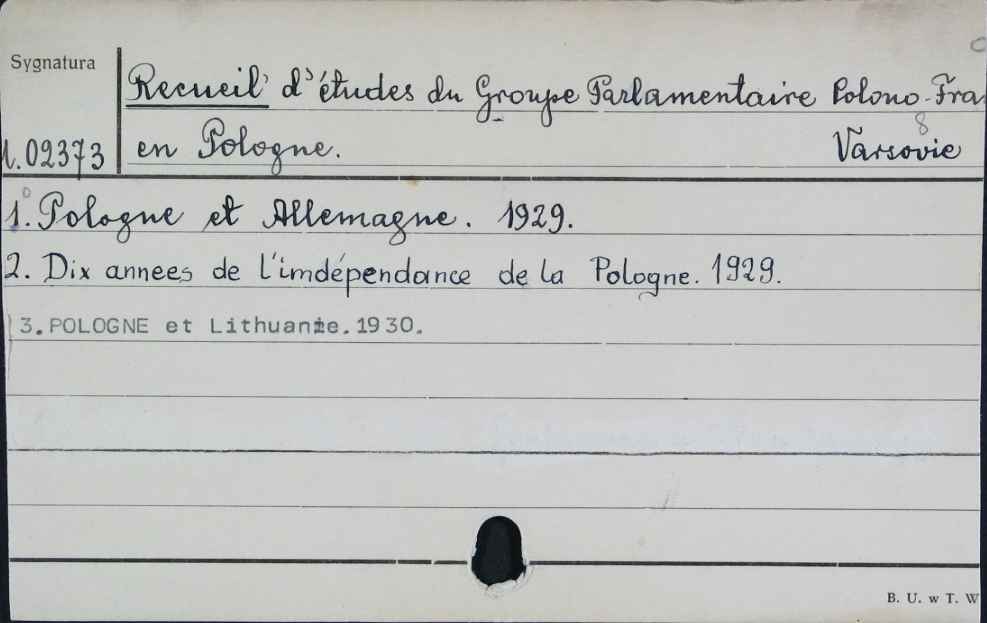 Sygnatura
Recueil d'études du Groupe Parlamentaire Polono-Fra
1.02373 en Pologne. 8 Varsovie
1. Pologne et Allemagne. 1929.
2. Dix annees de l'imdépendance de la Pologne. 1929.
3. POLOGNE et Lithuanie. 1930.
B. U. w T. W